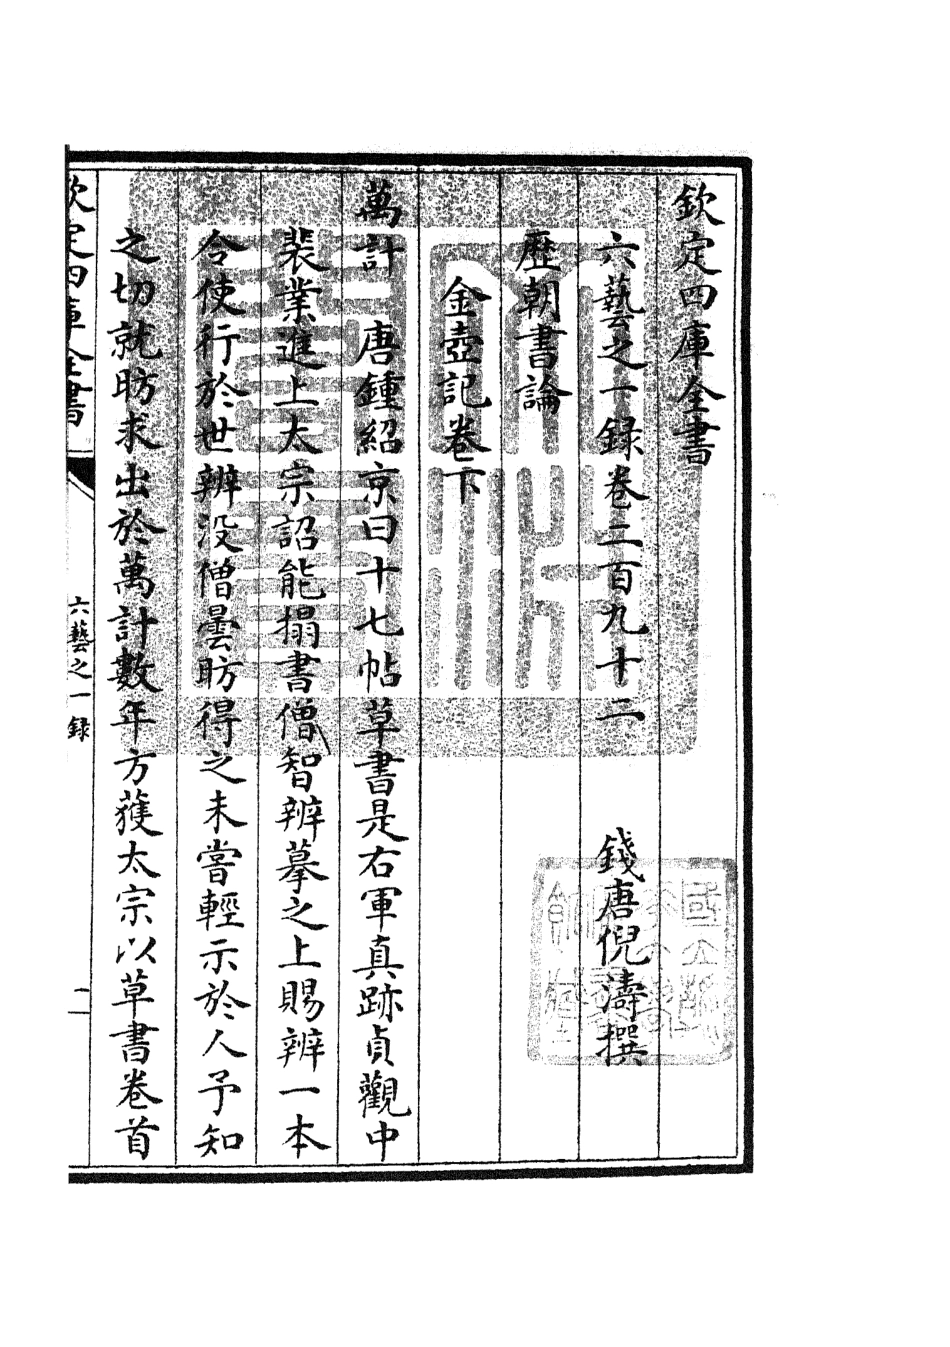 欽定四庫全書
六藝之一録卷二百九十二
錢唐倪濤撰
歷朝書論
金壺記卷下
萬計　唐鍾紹京曰十七帖草書是右軍真跡貞觀中
裴業進上太宗詔能搨書僧智辨摹之上賜辨一本
令使行於世辨没僧曇昉得之未嘗輕示於人予知
之切就昉求出於萬計數年方獲太宗以草書卷首
欽定四庫全書
六藝之一録